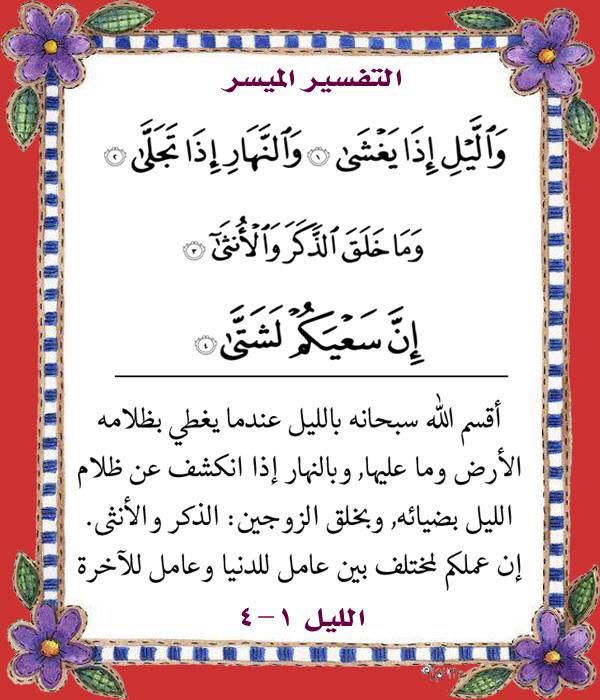 التفسير الميسر
وَٱلَّيْلِ إِذَا يَغْشَىٰ ١ وَٱلنَّهَارِ إِذَا تَجَلَّىٰ ٢
وَمَا خَلَقَ ٱلذَّكَرَ وَٱلْأُنثَىٰٓ ٣
إِنَّ سَعْيَكُمْ لَشَتَّىٰ ٤
أقسم الله سبحانه بالليل عندما يغطي بظلامه
الأرض وما عليها, وبالنهار إذا انكشف عن ظلام
الليل بضيائه, وبخلق الزوجين: الذكر والأنثى.
إن عملكم لمختلف بين عامل للدنيا وعامل للآخرة
الليل ١-٤